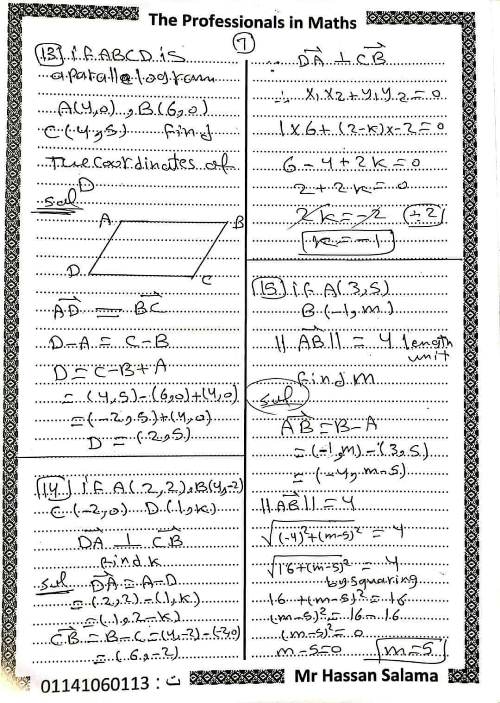 The Professionals in Maths
7
13 if ABCD is
a parallelogram
A(4,0) , B(6,0)
C(4,5) find
the coordinates of
D
sol
A B
D C
AD = BC
D-A = C-B
D = C-B+A
= (4,5)-(6,0)+(4,0)
= (-2,5)+(4,0)
D = (2,5)
14 if A(2,2), B(4,-2)
C(-2,0) D(1,k)
DA ⊥ CB
find k
sol DA = A-D
= (2,2)-(1,k)
= (1,2-k)
CB = B-C = (4,-2)-(-2,0)
= (6,-2)
∴ DA ⊥ CB
∴ x₁x₂+y₁y₂=0
1×6+(2-k)×-2=0
6-4+2k=0
2+2k=0
2k=-2 (÷2)
k=-1
15 if A(3,5)
B(-1,m)
||AB|| = 4 length
unit
find m
sol
AB = B-A
= (-1,m)-(3,5)
= (-4,m-5)
||AB|| = 4
√(-4)²+(m-5)² = 4
√16+(m-5)² = 4
by squaring
16+(m-5)² = 16
(m-5)² = 16-16
(m-5)² = 0
m-5=0 m=5
01141060113 : ت
Mr Hassan Salama